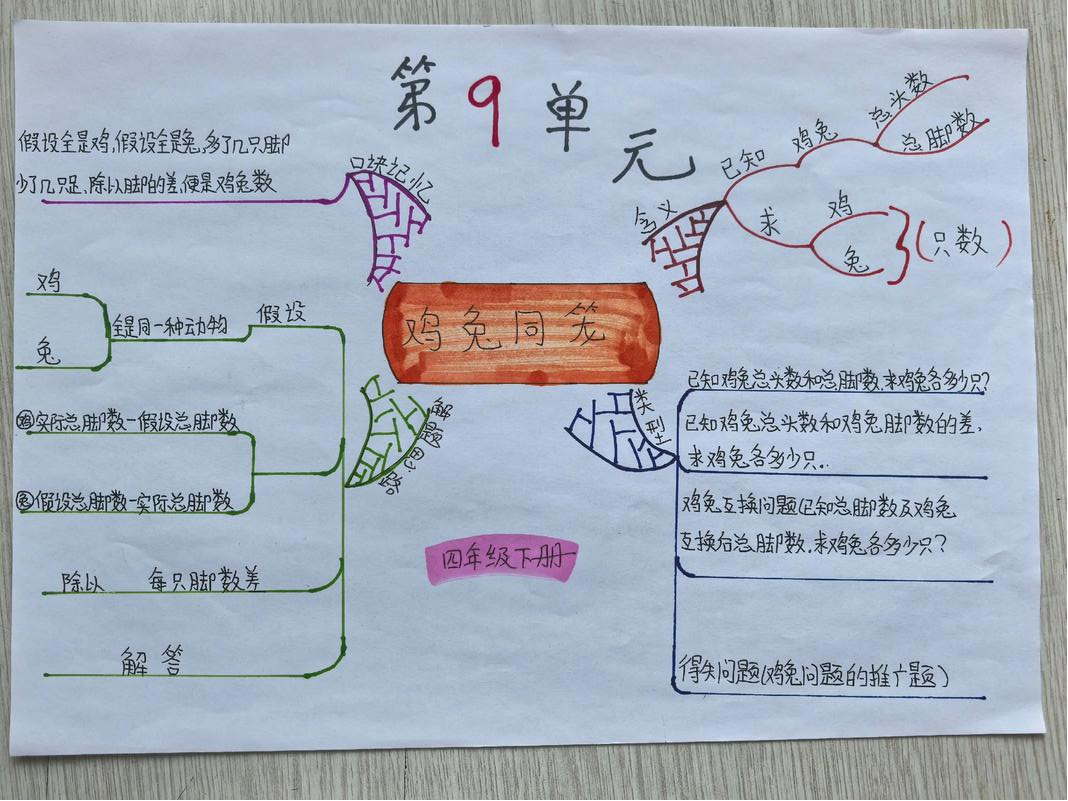 第9单元
口诀记忆
假设全是鸡,假设全是兔,多了几只脚
少了几只足,除以脚的差,便是鸡兔数
含义
已知
鸡兔
总头数
总脚数
求
鸡
兔
(只数)
鸡兔同笼
解题思路
假设
全是同一种动物
鸡
兔
鸡实际总脚数-假设总脚数
兔假设总脚数-实际总脚数
除以 每只脚数差
解答
类型
已知鸡兔总头数和总脚数,求鸡兔各多少只?
已知鸡兔总头数和鸡兔脚数的差,
求鸡兔各多少只。
鸡兔互换问题已知总脚数及鸡兔
互换后总脚数,求鸡兔各多少只?
得失问题(鸡兔问题的推广题)
四年级下册